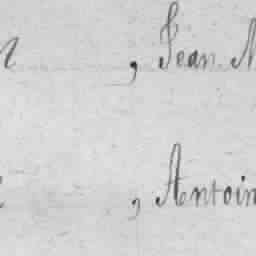 , Jean N
, Antoin